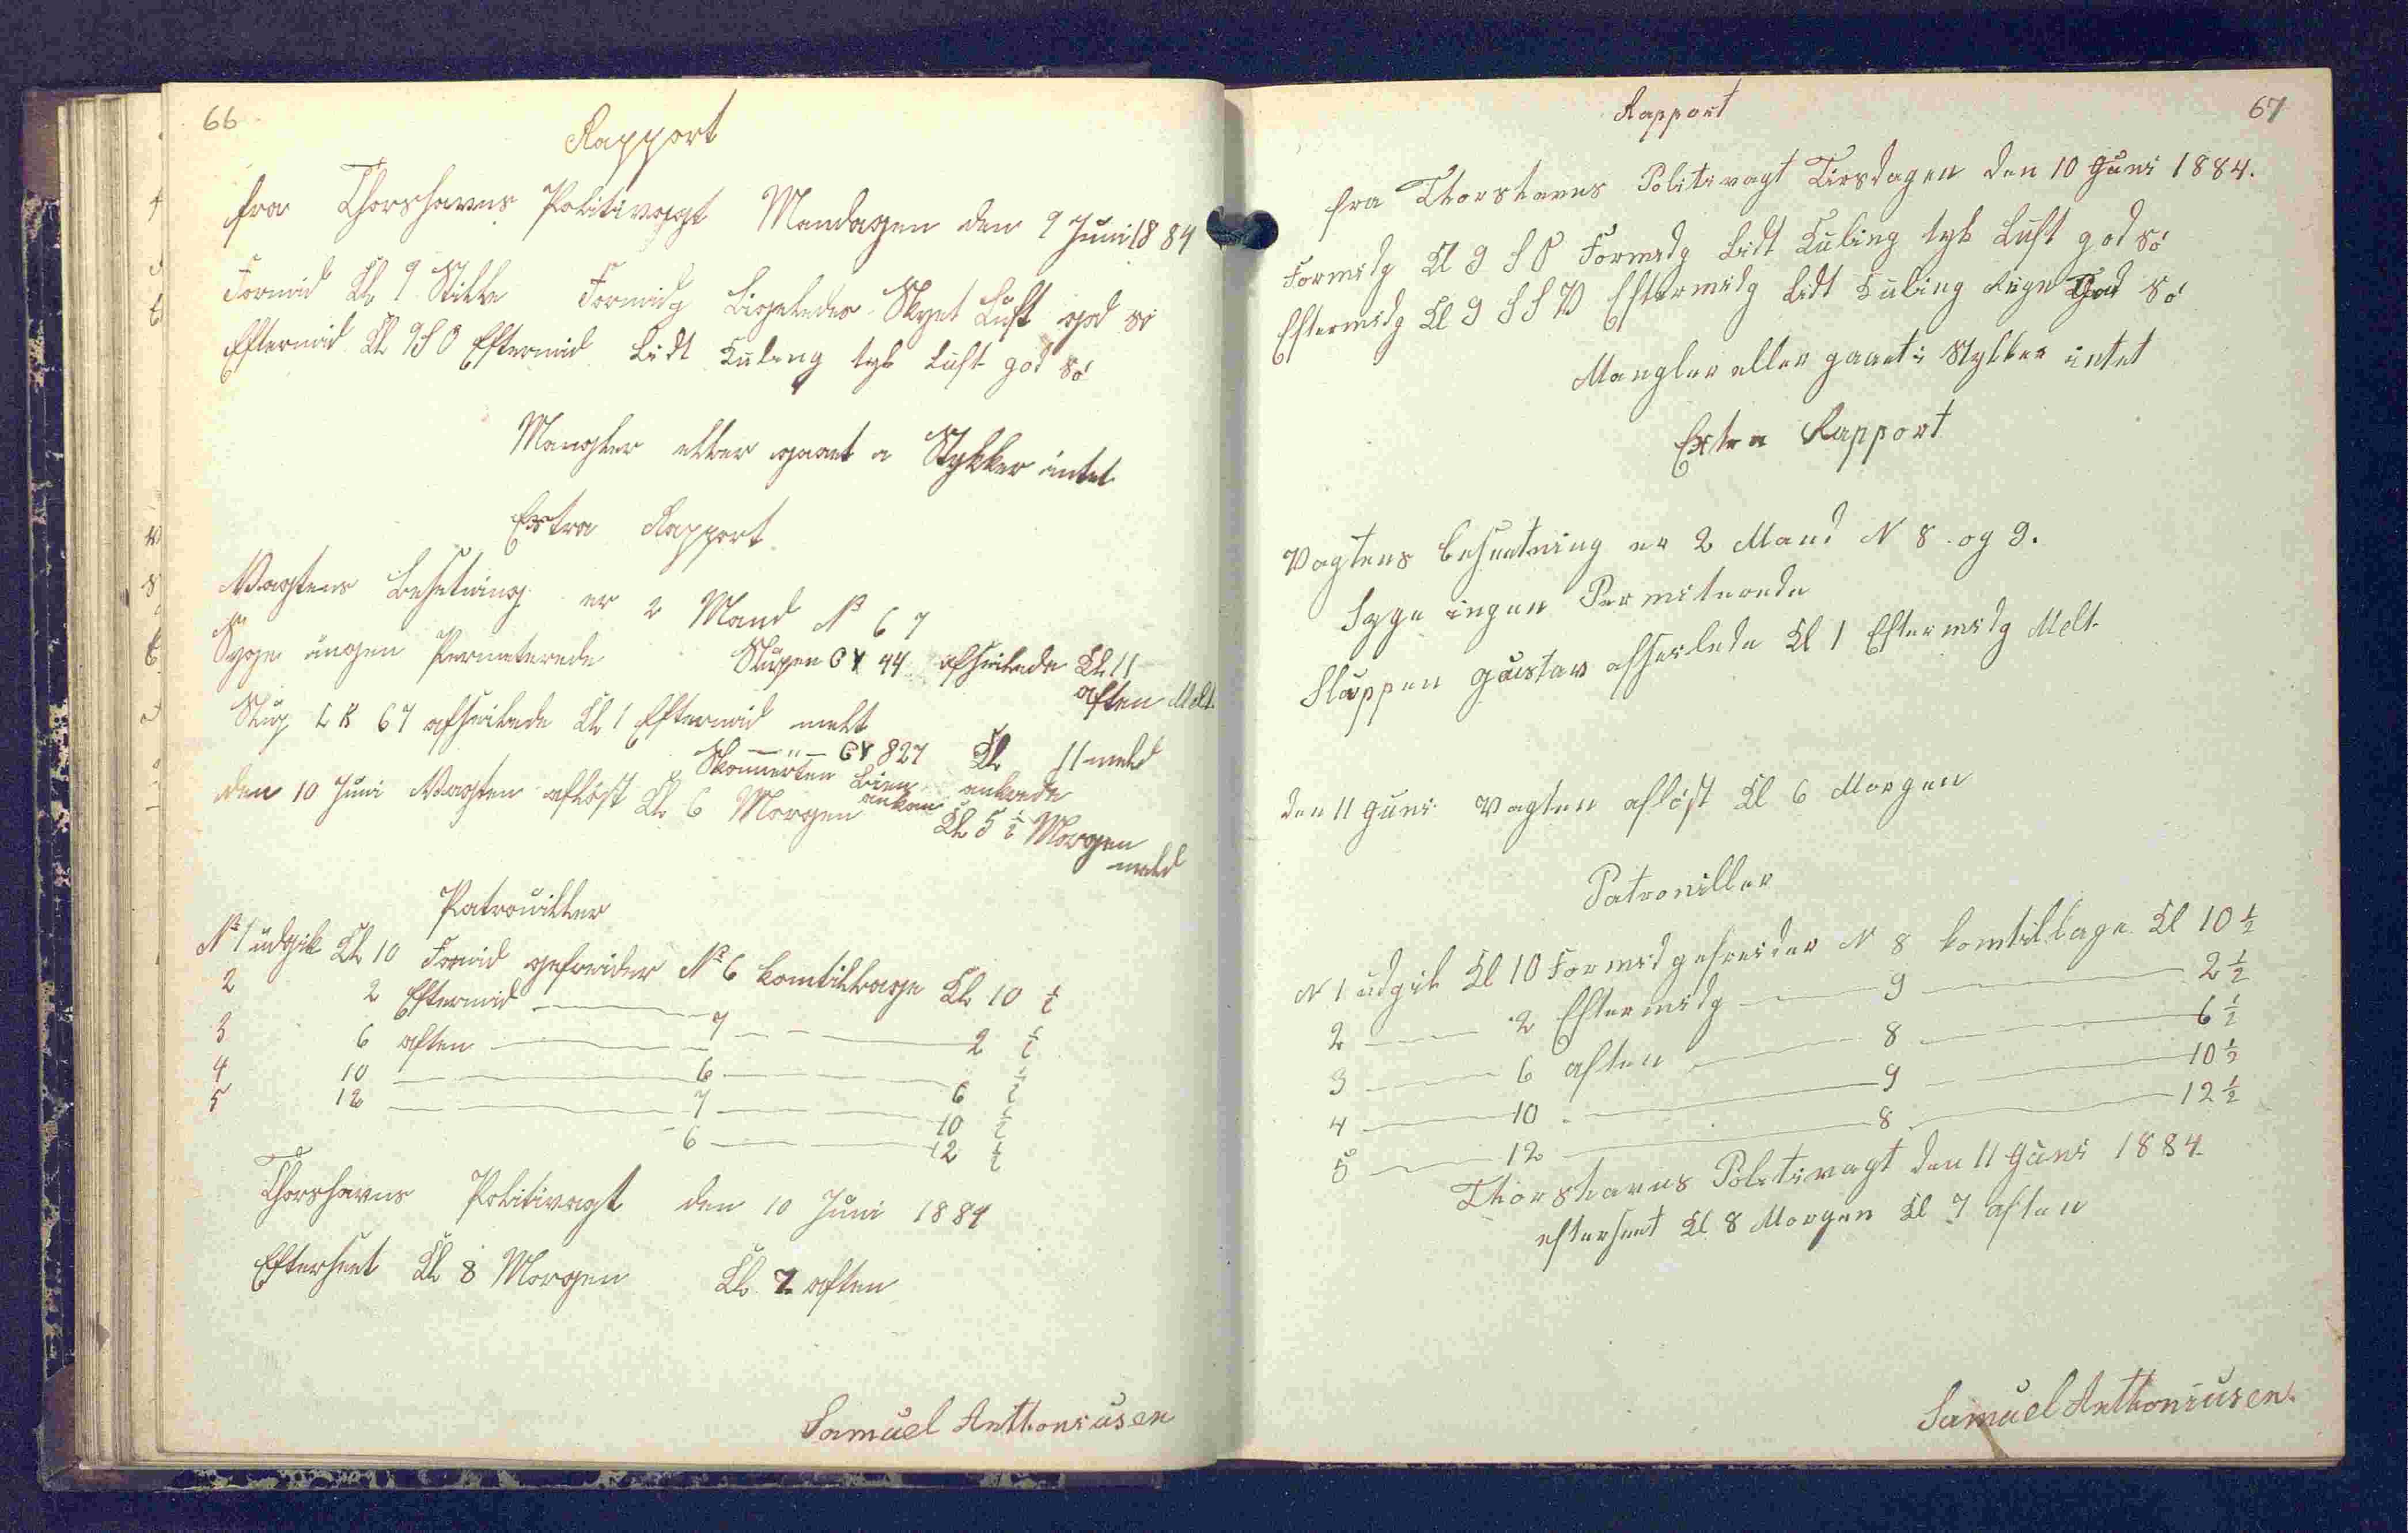 66
Rapport
fra Thorshavns Politivagt Mandagen den 9 Juni 1884
Formid Kl 9 Stille Formidg Ligeledes Skyet Luft god sö
Eftermid Kl 9 S O Eftermid Lidt Kuling tyk Luft god sö
Mangler eller gaaet i Stykker intet
Extra Rapport
Vagtens Besetning er 2 Mand № 6 7
Syge ingen Permeterede
Slupen GY 44 afseilede Kl 11
aften Melt
Slup LK 67 afseilede Kl 1 Eftermid melt
— " — GY 827 Kl 11 meld
Skonnerten ankrede
Kl 5 ½ Morgen
meld
den 10 Juni Vagten aflöst Kl 6 Morgen
Patrouiller
№ 1 udgik Kl 10 Formid gefreider № 6 komtilbage Kl 10 ½
2 2 Eftermid — 7 — 2 ½
3 6 aften — 6 — 6 ½
4 10 — 7 — 10 ½
5 12 — 6 — 12 ½
Thorshavns Politivagt den 10 Juni 1884
Efterseet Kl 8 Morgen Kl 7 aften
Samuel Anthoniusen
67
Rapport
fra Thorshavns Politivagt Tirsdagen den 10 Juni 1884.
Formidg Kl 9 S O Formidg Lidt Kuling tyk Luft god sö
Eftermidg Kl 9 S S V Eftermidg lidt Kuling Rign God sö
Mangler eller gaaet i Stykker intet
Extra Rapport
Vagtens besaetning er 2 Mand N 8 og 9.
Syge ingen Permiterede
Sluppen Gustav afseilede Kl 1 Eftermidg Melt
den 11 Juni Vagten aflöst Kl 6 Morgen
Patrouiller
N 1 udgik Kl 10 Formid gefreider N 8 komtilbage Kl 10 ½
2 — 2 Eftermidg — 9 — 2 ½
3 — 6 aften — 8 — 6 ½
4 — 10 — 9 — 10 ½
5 — 12 — 8 — 12 ½
Thorshavns Politivagt den 11 Juni 1884
efterseet Kl 8 Morgen Kl 7 aften
Samuel Anthoniusen.